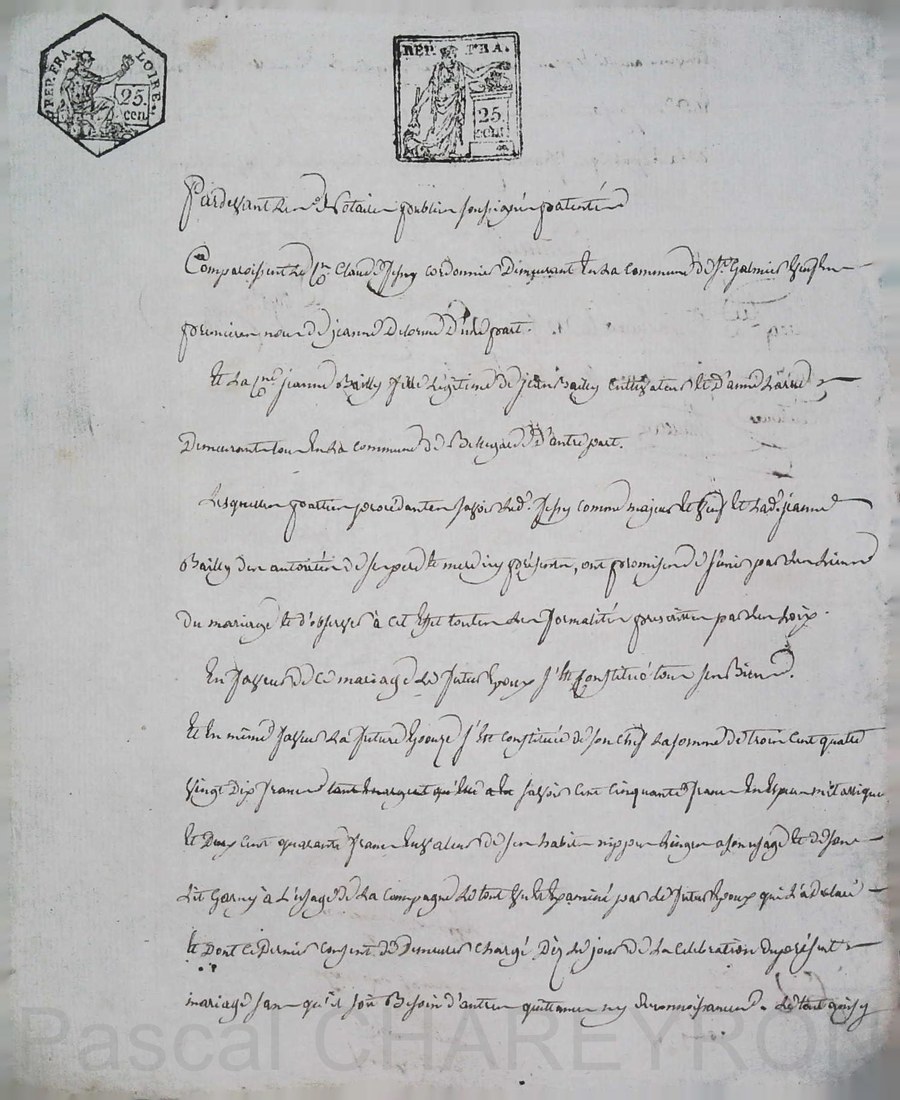 REP. FRA. LOIRE.
25.
cen.
REP. FRA.
25.
cen.
Pardevant Les Notaires publics soussignés patentés
Comparoissent le Claude cordonnier Demeurant En La Commune de St. Galmier veuf En
premieres noces de jeanne Delorme D'une part.
Et La jeanne Bailly fille Légitime de jean Bailly Cultivateur Et D'anne
Demeurants tous En La Commune de Bellegarde D'autre part.
Lesquelles parties procédantes savoir Led. comme majeur Et veuf Et Lad. jeanne
Bailly des autorités de ses pere Et mere icy présents, ont promis de s'unir par Les Liens
du mariage Et d'observer à cet Effet toutes Les formalités prescrittes par Les Loix.
En faveur de ce mariage Le futur Epoux s'Est Constitué tous ses Biens.
Et En même faveur La future Epouze s'Est Constituée de son chef La somme de trois Cent quatre
vingt Dix francs savoir Cent Cinquante francs En Espece métallique
Et Deux Cent quarante francs En valeur de ses habits nippes Linges a son usage Et de son
Lit Garny à L'usage de La Campagne Le tout vu Et Examiné par Le futur Epoux qui L'a déclaré
Et Dont ce Dernier Consent de Demeurer Chargé Dez Le jour de La Celebration Du présent
mariage sans qu'il soit Besoin d'autres quittances ny Reconnoissances. Le tout
Pascal CHAREYRON